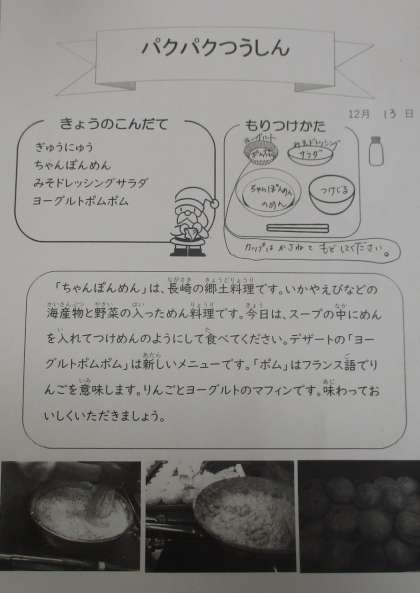 パクパクつうしん
12月 13日
きょうのこんだて
ぎゅうにゅう
ちゃんぽんめん
みそドレッシングサラダ
ヨーグルトポムポム
もりつけかた
ヨーグルト
ぽんぽん
みそドレッシング
サラダ
ちゃんぽんめん
のめん
つけじる
カップはかさねてもどしてください。
「ちゃんぽんめん」は、長崎の郷土料理です。いかやえびなどの
海産物と野菜の入っためん料理です。今日は、スープの中にめん
を入れてつけめんのようにして食べてください。デザートの「ヨー
グルトポムポム」は新しいメニューです。「ポム」はフランス語でり
んごを意味します。りんごとヨーグルトのマフィンです。味わってお
いしくいただきましょう。